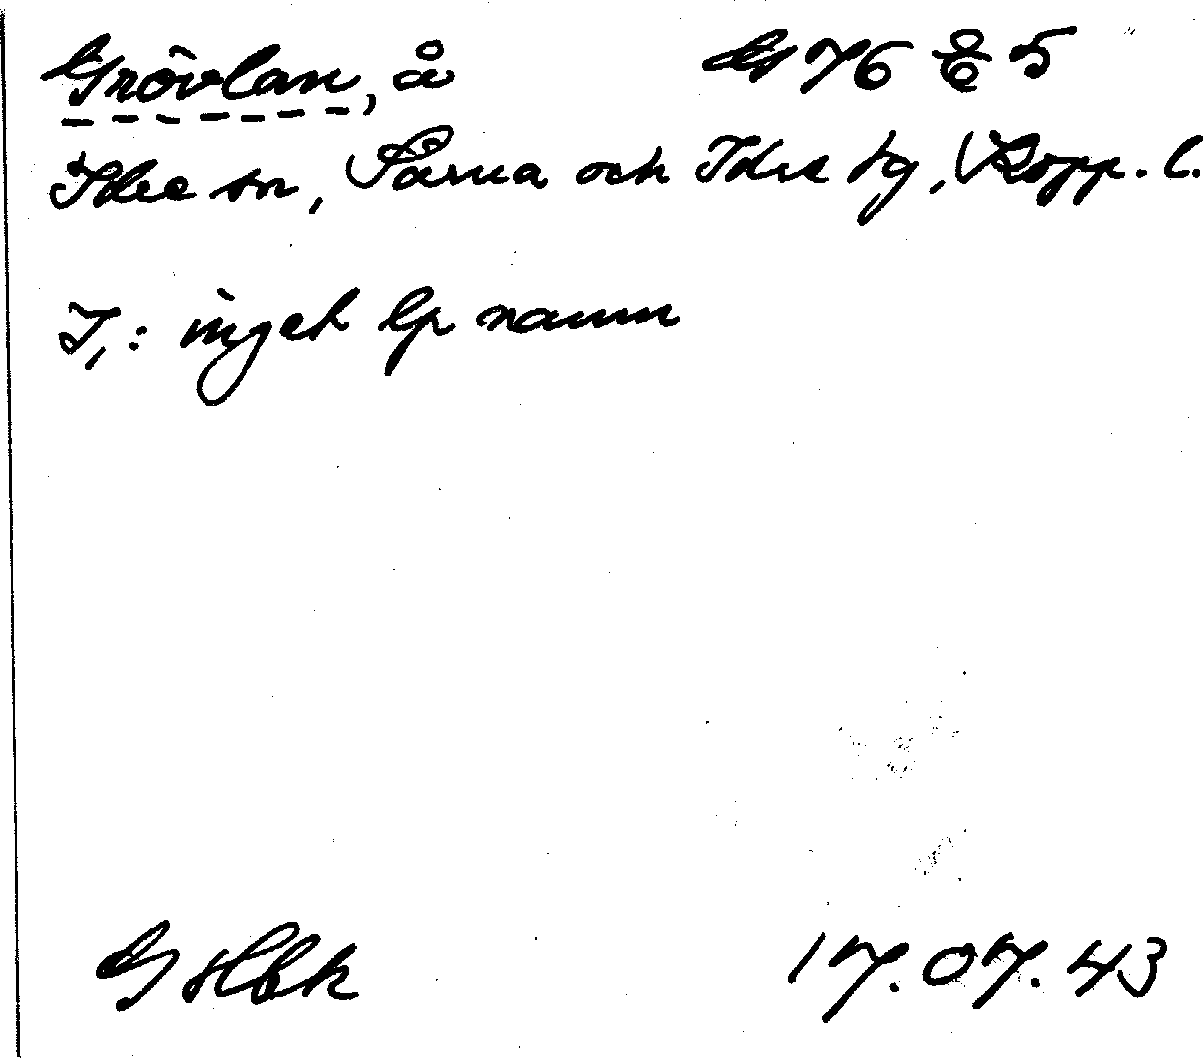 Grövlan, å G 76 & 5
Idre sn, Särna och Idre tg, Kopp. l.
J,: inget lp namn
G Hbk 17.07.43